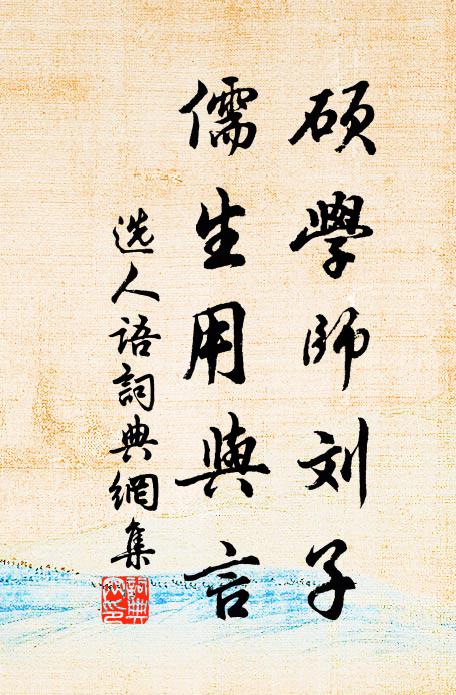 硕學師刘子
儒生用與言
选人语詞典網集